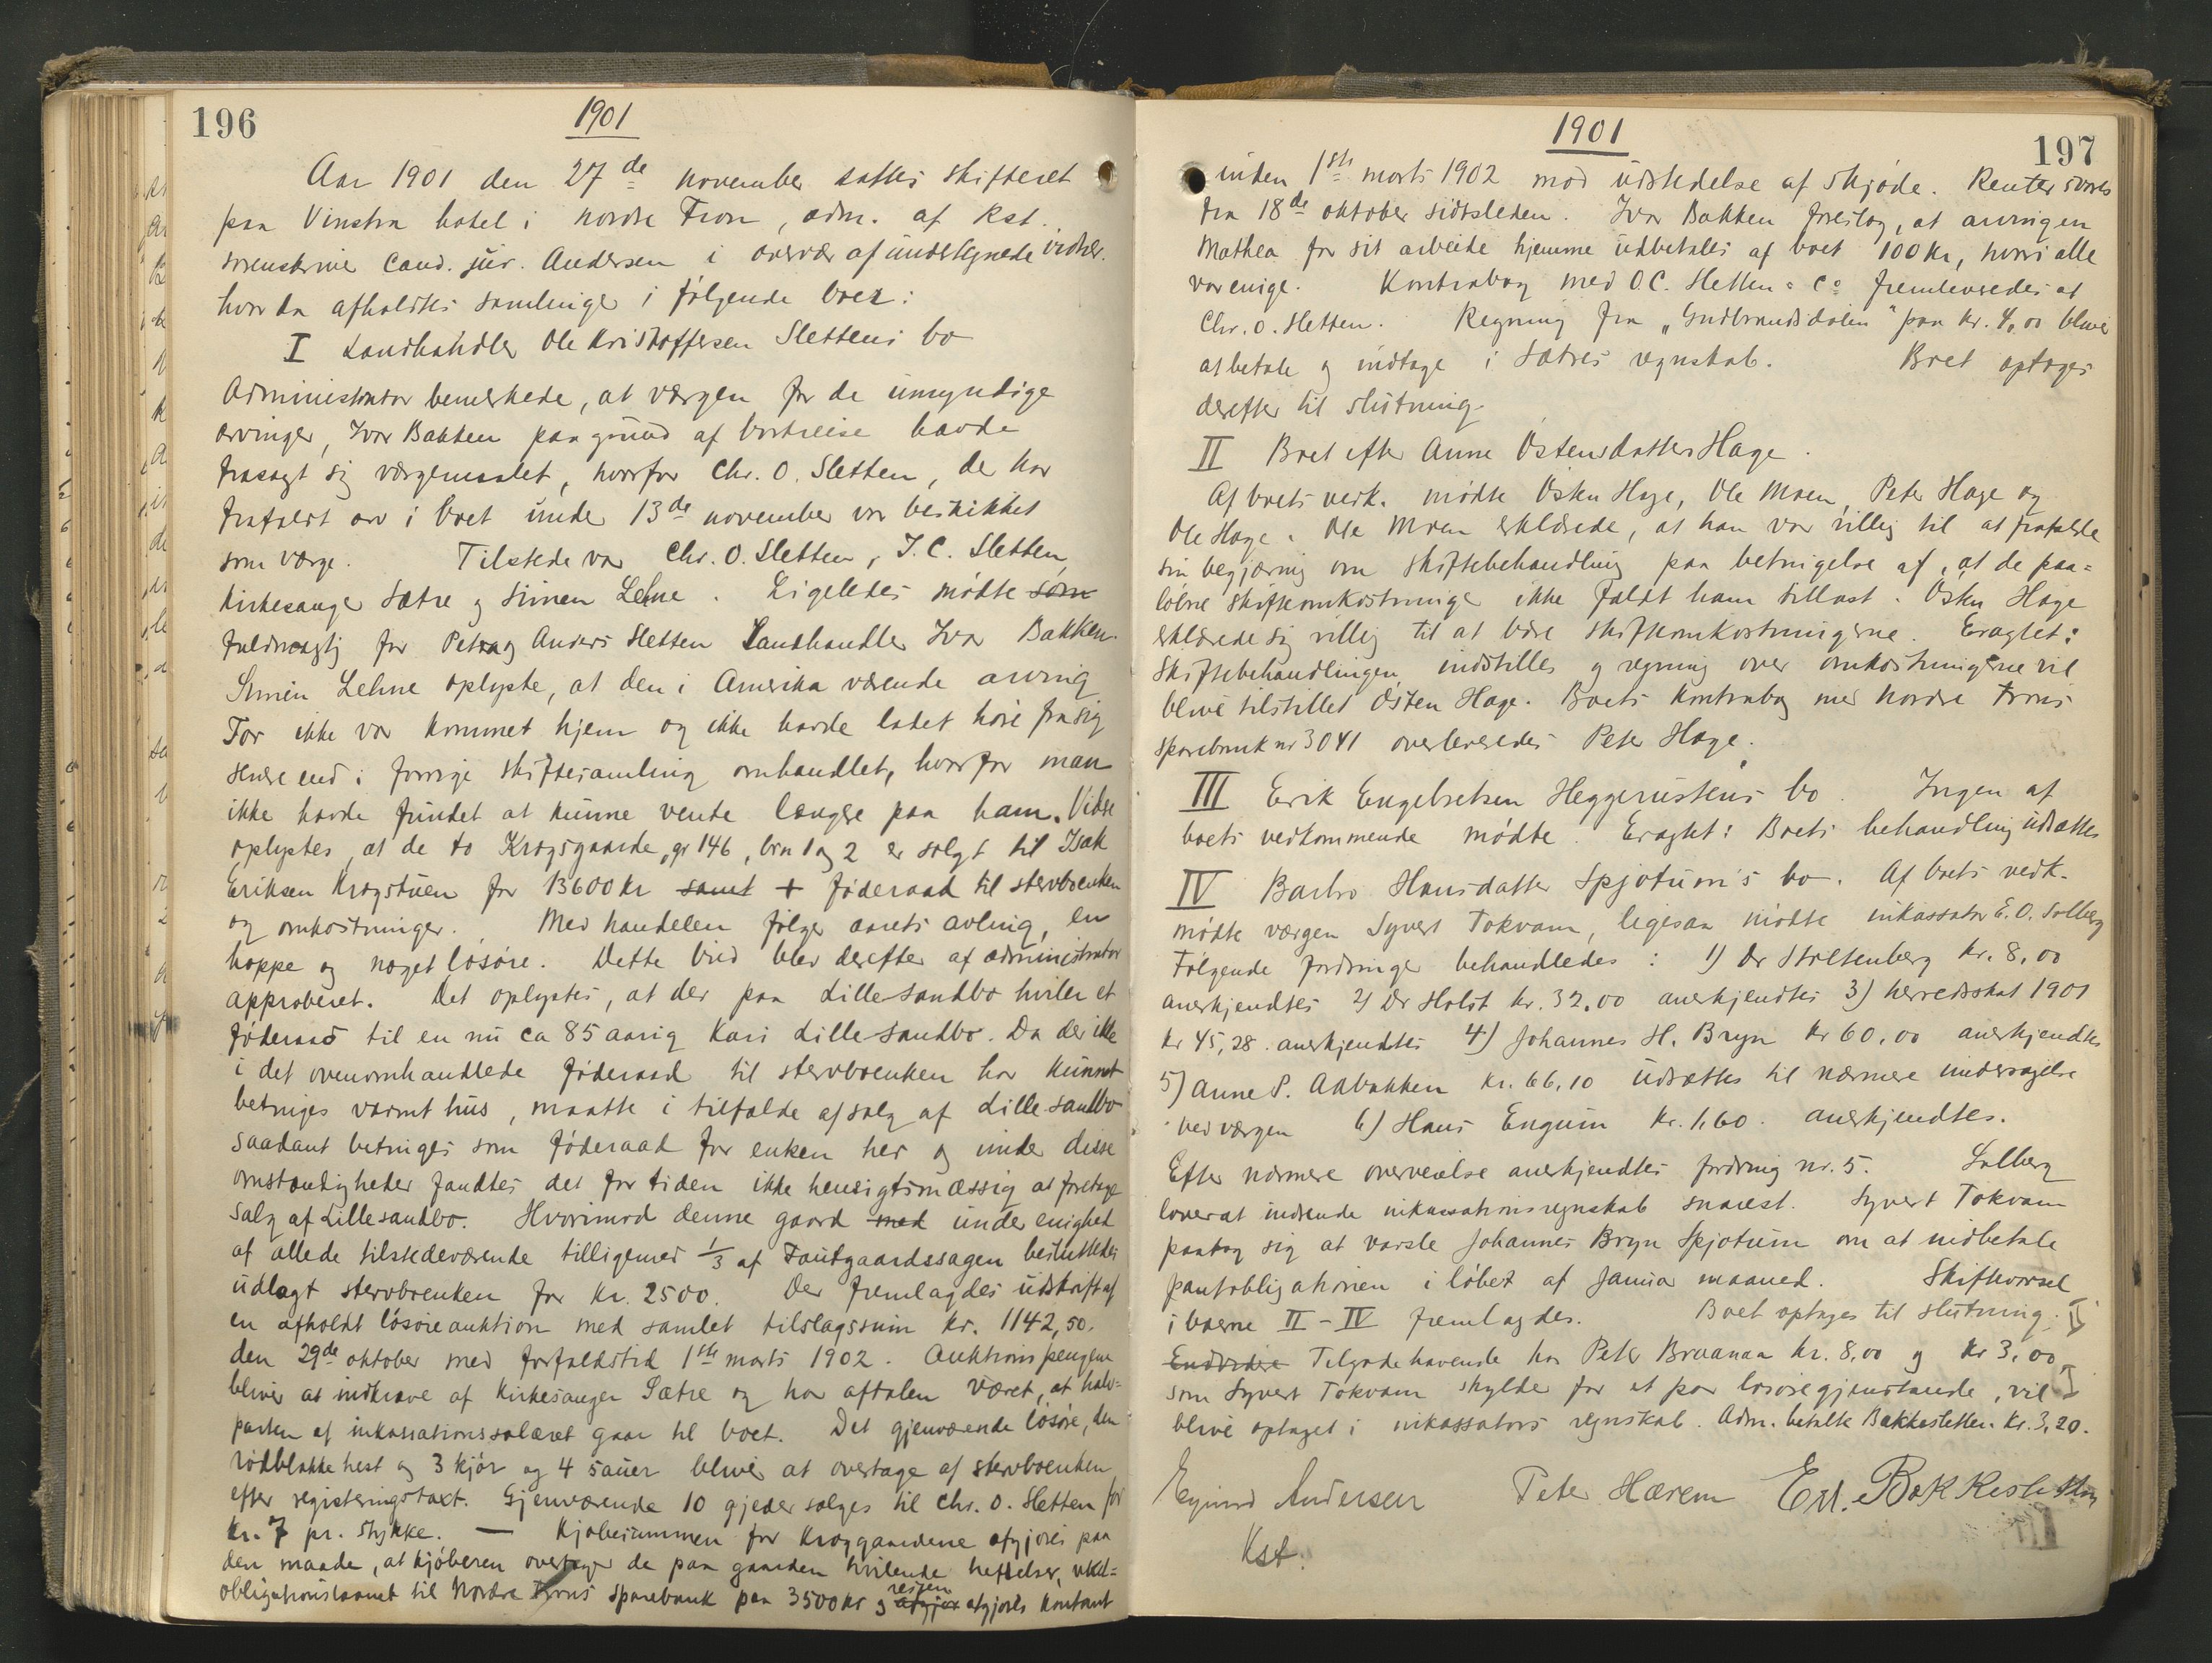 196
1901
Aar 1901 den 27de november sattes skifteret
paa Vinstra hotel i nordre Fron, adm. af kst.
sorenskriver cand. jur. Andersen i overvær af undertegnede vidner.
hvor da afholdtes samlinger i følgende boer:
I Landhandler Ole Kristoffersen Slettens bo
Administrator bemerkede, at værgen for de umyndige
arvinger, Ivar Bakken paa grund af bortreise havde
frasagt sig værgemaalet, hvorfor Chr. O. Sletten, der har
frafaldt arv i boet under 13de november var beskikket
som værge. Tilstede var Chr. O. Sletten, J. C. Sletten,
kirkesanger Sætre og Simen Lehne. Ligeledes mødte som
fuldmægtig for Petra og Anders Sletten Landhandler Ivar Bakken.
Simen Lehne oplyste, at den i Amerika værende arving
Tor ikke var kommet hjem og ikke havde ladet høre fra sig
videre end i forrige skiftesamling omhandlet, hvorfor man
ikke havde fundet at kunne vente længere paa ham. Videre
oplystes, at de to Krogsgaarde, gr 146, brn 1 og 2 er solgt til Isak
Eriksen Krogstuen for 13600 kr samt + føderaad til stervboenken
og omkostninger. Med handelen følger aarets avling, en
hoppe og noget løsøre. Dette bud blev derefter af administrator
approberet. Det oplystes, at der paa Lillesandbo hviler et
føderaad til en nu ca 85 aarig Kari Lillesandbo. Da der ikke
i det ovenomhandlede føderaad til stervboenken har kunnet
betinges varmt hus, maatte i tilfælde af salg af Lillesandbo
saadant betinges som føderaad for enken her og under disse
omstændigheder fandtes det for tiden ikke hensigtsmæssig at foretage
salg af Lillesandbo. Hvorimod denne gaard med under enighed
af alle de tilstedeværende tilligemed 1/3 af Fautgaardssagen besluttedes
udlagt stervboenken for kr. 2500. Der fremlagdes udskrift af
en afholdt løsøreauktion med samlet tilslagssum kr. 1142,50.
den 29de oktober med forfaldstid 1ste marts 1902. Auktionspengene
bliver at indkræve af kirkesanger Sætre og har aftalen været, at halv=
parten af inkassationssalæret gaar til boet. Det gjenværende løsøre, den
rødblakke hest og 3 kjør og 4 sauer bliver at overtage af stervboenken
efter registreringstaxt. Gjenværende 10 gjeder sælges til Chr. O. Sletten for
kr. 7 pr. stykke. — Kjøbesummen for Kroggaardene afgjøres paa
den maade, at kjøberen overtager de paa gaarden hvilende heftelser,
obligationslaanet til Nordre Frons sparebank paa 3500 kr og afgjør resten afgjøres kontant
1901
197
inden 1ste marts 1902 mod udstedelse af skjøde. Renter svares
fra 18de oktober sidstleden. Ivar Bakken foreslog, at arvingen
Mathea for sit arbeide hjemme udbetales af boet 100 kr, hvori alle
var enige. Kontrabog med O. C. Sletten & Co fremleveredes af
Chr. O. Sletten. Regning fra „Gudbrandsdølen" paa kr. 4,00 bliver
at betale og indtage i Sætres regnskab. Boet optages
derefter til slutning.
II Boet efter Anne Østensdatter Hage.
Af boets vedk. mødte Østen Hage, Ole Moen, Peter Hage og
Ole Hage. Ole Moen erklærede, at han var villig til at frafalde
sin begjæring om skiftebehandling paa betingelse af, at de paa=
løbne skifteomkostninger ikke faldt ham tillast. Østen Hage
erklærede sig villig til at bære skifteomkostningerne. Eragtet:
Skiftebehandlingen indstilles og regning over omkostningerne vil
blive tilstillet Østen Hage. Boets kontrabog med Nordre Frons
sparebank nr 3041 overleveredes Peter Hage.
III Erik Engebretsen Heggerustens bo. Ingen af
boets vedkommende mødte. Eragtet: Boets behandling udsættes
IV Barbro Hansdatter Spjotum's bo. Af boets vedk.
mødte værgen Syvert Tokvam, ligesaa mødte inkassator E. O. Solberg
Følgende fordringer behandledes: 1) Dr Stoltenberg kr. 8,00
anerkjendtes 2) Dr Holst kr. 32,00 anerkjendtes 3) herredsskat 1901
kr 45,28. anerkjendtes 4) Johannes H. Bryn kr 60,00 anerkjendtes
5) Anne P. Aabakken kr. 66,10 udsættes til nærmere undersøgelse
ved værgen 6) Hans Engum kr. 1,60. anerkjendtes.
Efter nærmere overveielse anerkjendtes fordring nr. 5. Solberg
lover at indsende inkassationsregnskab snarest. Syvert Tokvam
paatog sig at varsle Johannes Bryn Spjotum om at indbetale
pantobligationen i løbet af januar maaned. Skiftevarsel
i boerne II – IV fremlagdes. Boet optages til slutning.
Endvidere Tilgodehavende hos Peter Braanaa kr. 8,00 og kr 3,00
som Syvert Tokvam skylder for et par løsøregjenstande, vil
blive optaget i inkassators regnskab. Adm. betalte Bakkesletten kr. 3,20.
Eyvind Andersen Peter Hærem Bakkesletten
Kst.